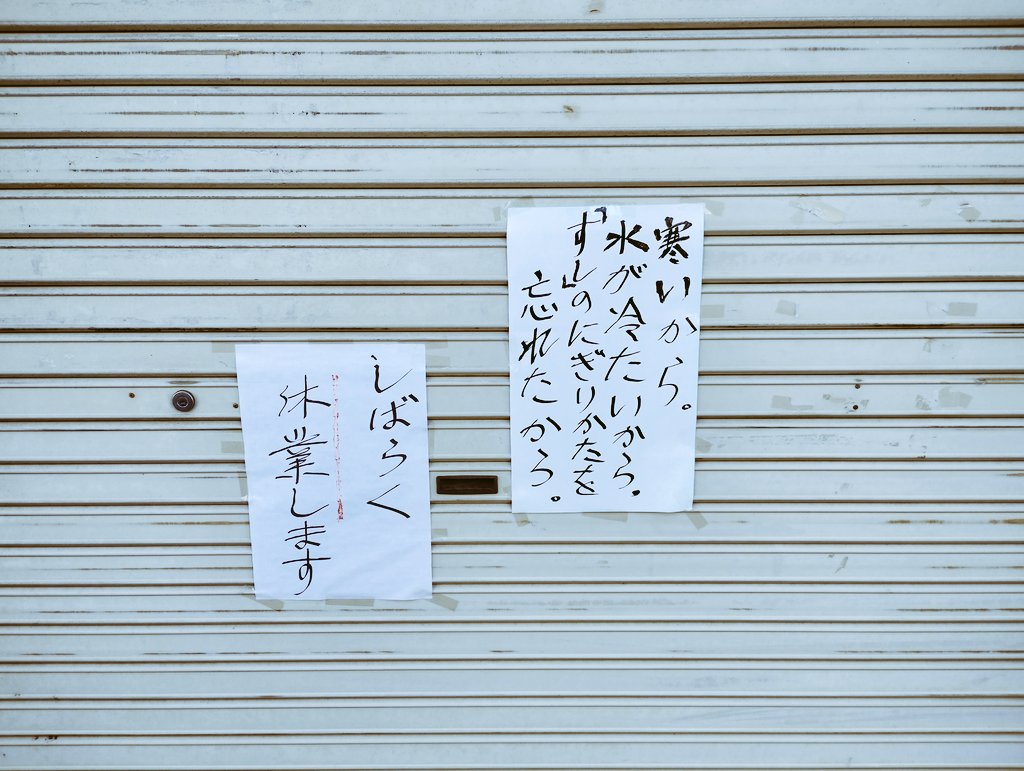 寒いから。
水が冷たいから。
「すし」のにぎりかたを
忘れたから。
しばらく
休業します